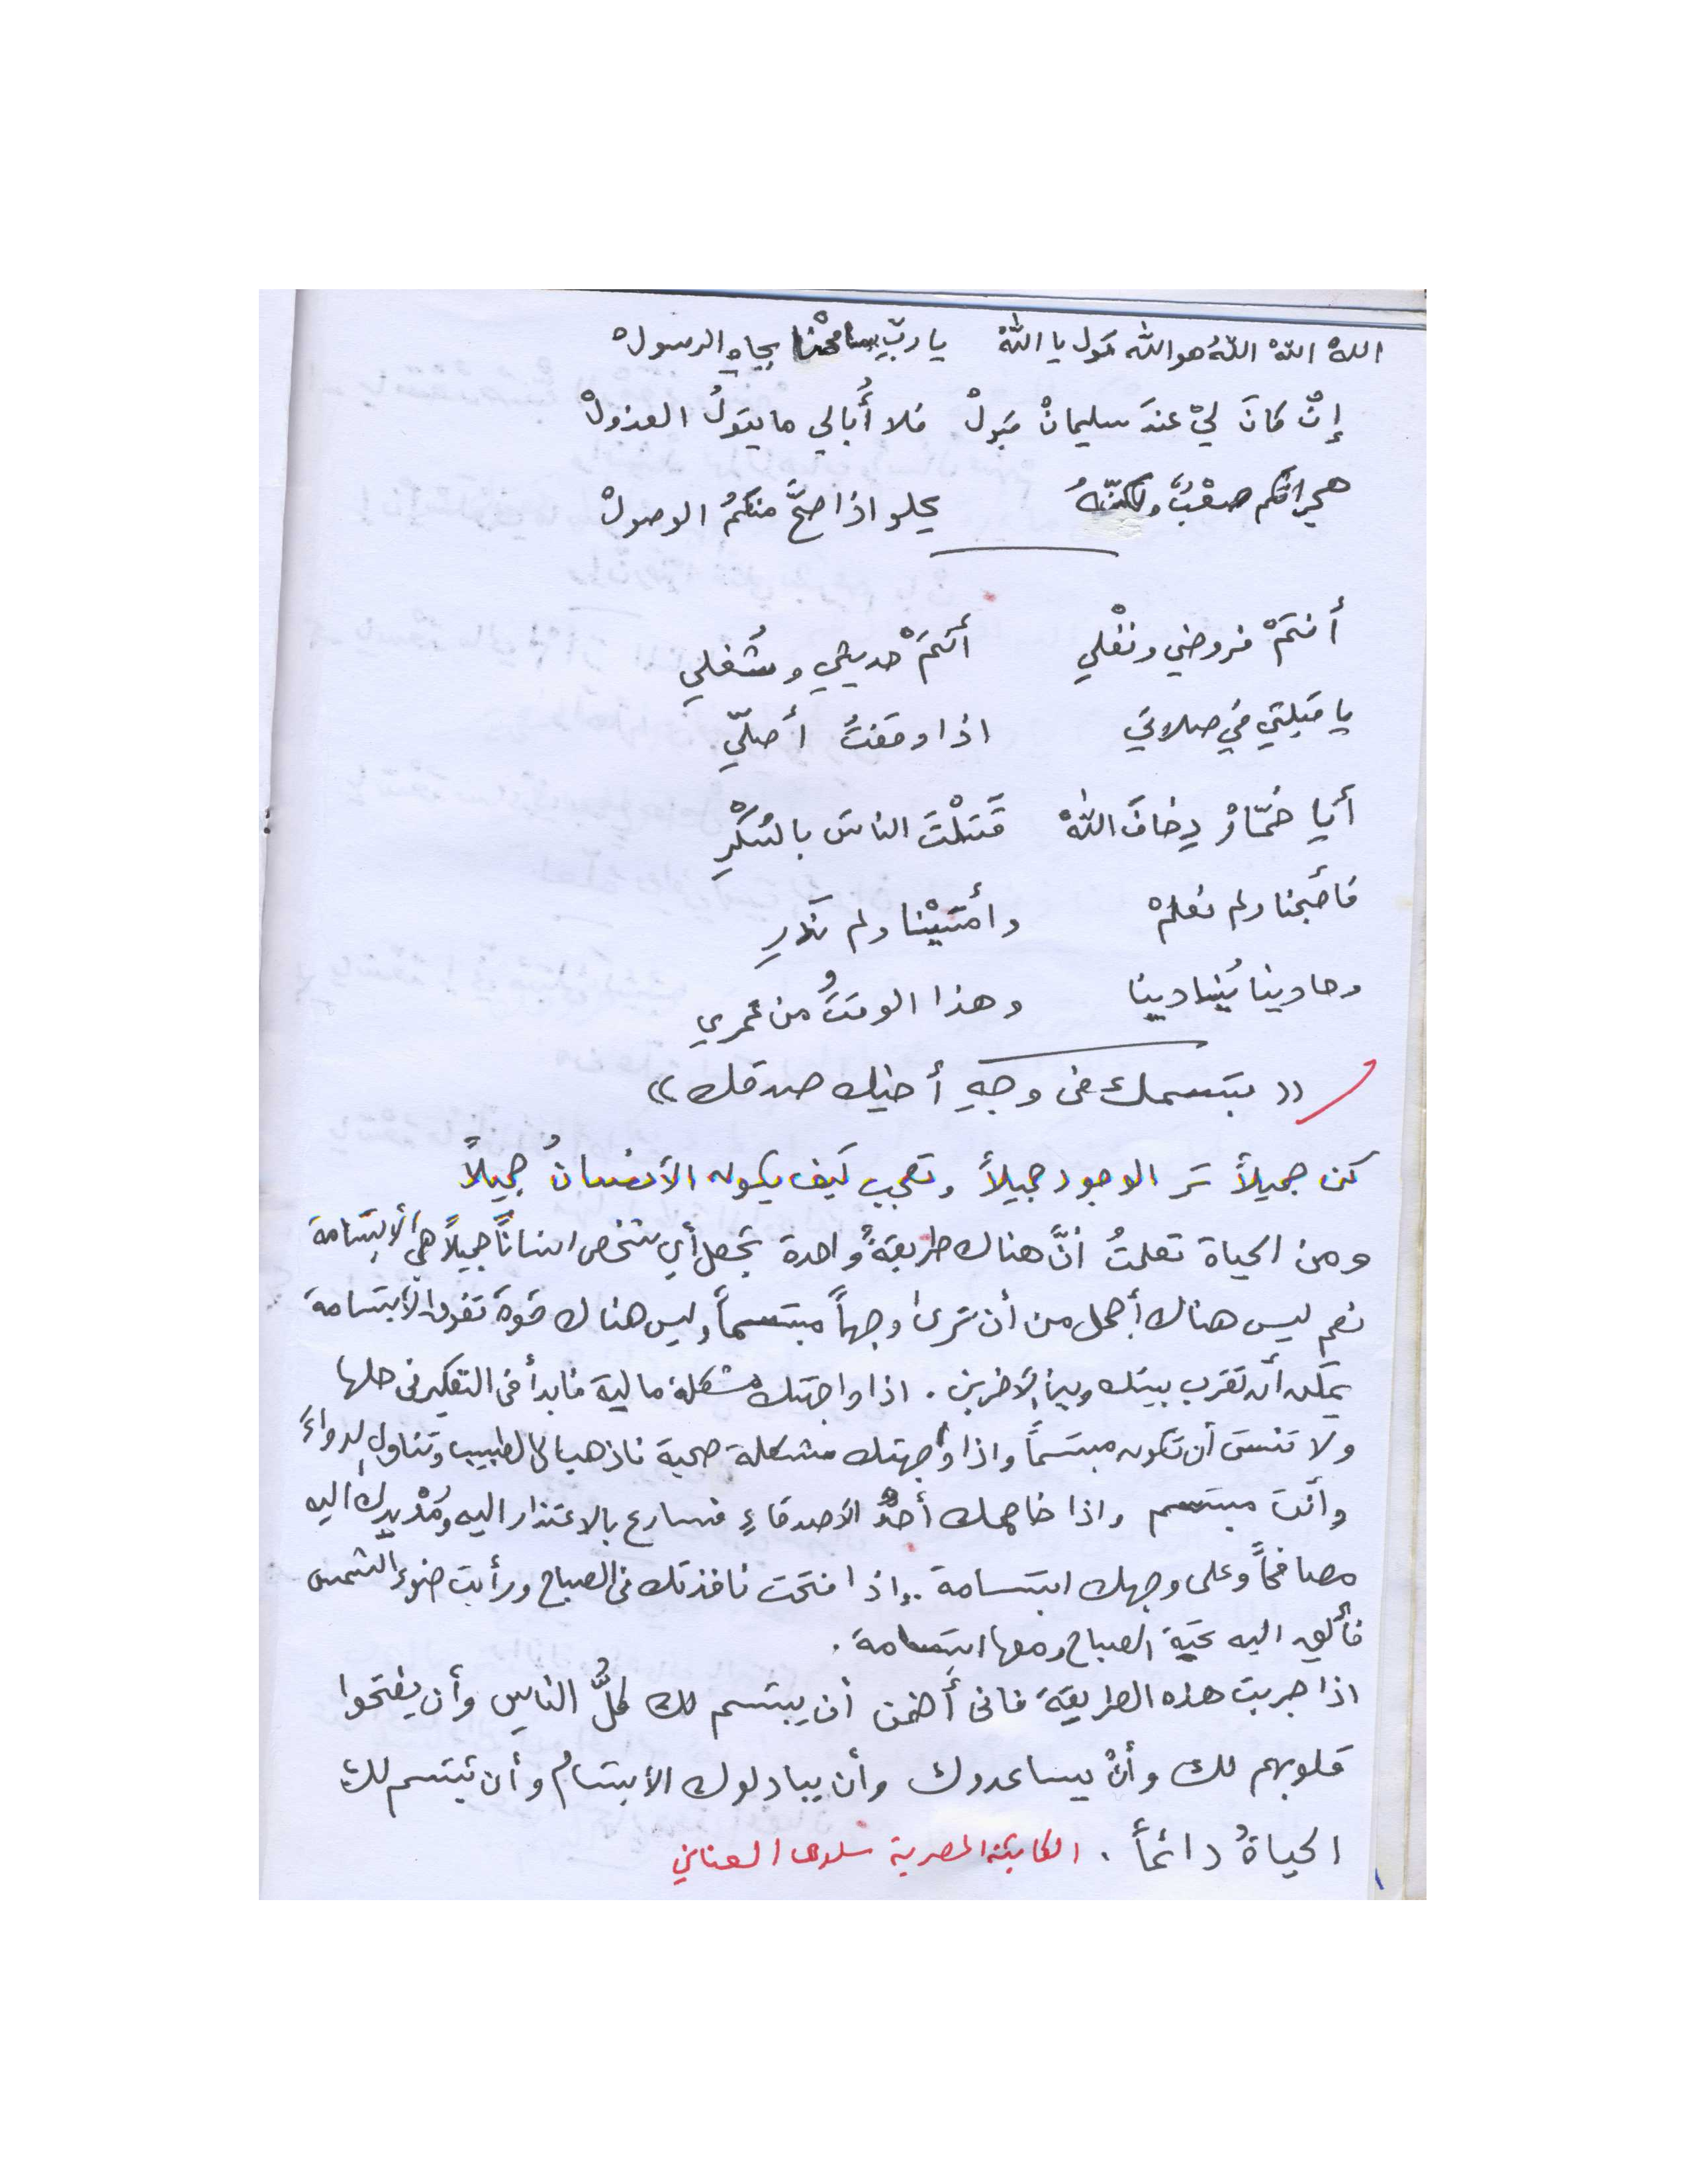 اللهْ اللهْ اللهُ هو الله قول يا اللهْ يا ربّ سامحْنا بجاهِ الرسولْ
إنْ كانَ ليْ عندَ سليمانْ قبولْ فلا أُبالي ما يقولُ العذولْ
هجرانكم صعْبٌ ولكنّهُ يحلو اذا صحَّ منكمُ الوصولْ
أنتمْ فروضي ونفْلي أنتمْ حديثي وشُغلي
يا قبلتي في صلاتي اذا وقفتُ أُصلّي
أيا خمّارْ خافَ اللهْ قَتلْتَ الناسَ بالسُكْرِ
فأصبحنا ولم نعلمْ وأمسَيْنا ولم نَدرِ
وحادينا يُنادينا وهذا الوقتُ من عمري
((بتسمك فى وجهِ أخيك صدقك))
كن جميلاً تر الوجود جميلاً وتعجب كيف يكون الأنسانُ جميلاً
ومن الحياة تعلمتُ أنَّ هناك طريقةً واحدة تجعل أي شخص انساناً جميلاً هي الأبتسامة
نعم ليس هناك أجمل من أن ترى وجهاً مبتسماً وليس هناك قوة تفوق الأبتسامة
يمكن أن تقرب بينك وبين الآخرين . اذا واجهتك مشكلة مالية فابدأ فى التفكير فى حلها
ولا تنسَ أن تكون مبتسماً واذا واجهتك مشكلة صحية فاذهب الى الطبيب وتناول الدواءَ
وأنت مبتسم واذا خاصمك أحدُ الأصدقاءِ فسارع بالاعتذار اليه ومُدْ يدك اليه
مصافحاً وعلى وجهك ابتسامة .. اذا فتحت نافذتك فى الصباح ورأيت ضوء الشمس
فألقِ اليه تحية الصباح ومعها ابتسامة .
اذا جربت هذه الطريقة فانى أضمن أن يبتسم لك كلُّ الناسِ وأن يفتحوا
قلوبهم لك وأنْ يساعدوك وأن يبادلوك الأبتسام وأن تبتسم لك
الحياةُ دائماً . الكاتبة المصرية سلوى العناني